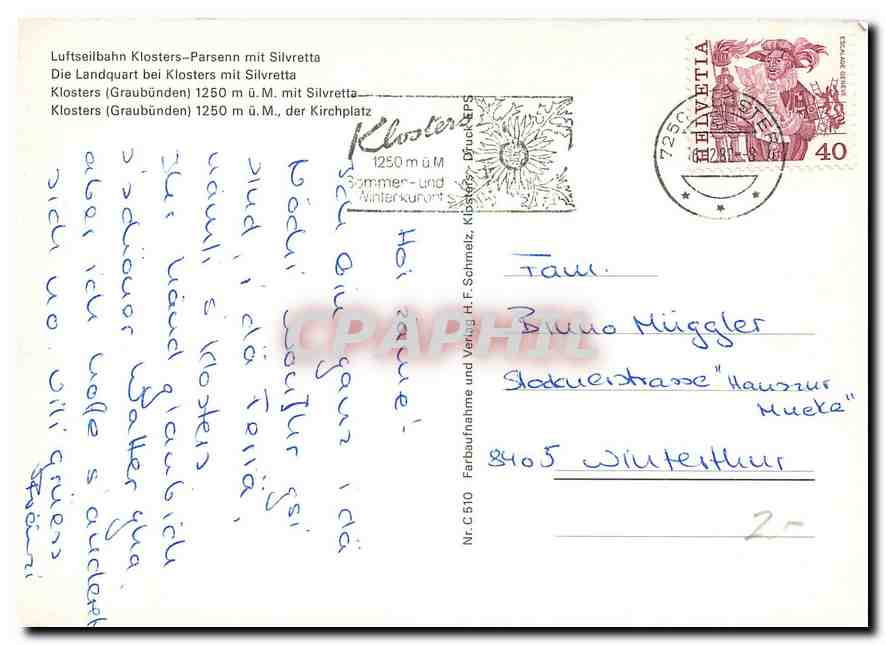 Luftseilbahn Klosters-Parsenn mit Silvretta
Die Landquart bei Klosters mit Silvretta
Klosters (Graubünden) 1250 m ü. M. mit Silvretta
Klosters (Graubünden) 1250 m ü. M., der Kirchplatz
Klosters
1250 m ü M
Sommer- und
Winterkurort
7250 KLOSTERS
HELVETIA
ESCALADE GENÈVE
40
Hoi zäme!
Ich bin ganz i dä
Nöchi
sind i dä Feriä,
nämli s Klosters
Mir händ glaub ich
schöner Wätter gha
aber ich hoffe s änderet
sich no. Vili grüess
Fränzi
Nr. C 510 Farbaufnahme und Verlag H. F. Schmelz, Klosters - Druck EPS
Fam.
Bruno Müggler
Stocknerstrasse "Haus zur
Mucka"
8405 Winterthur
2.-
CPAPHIL